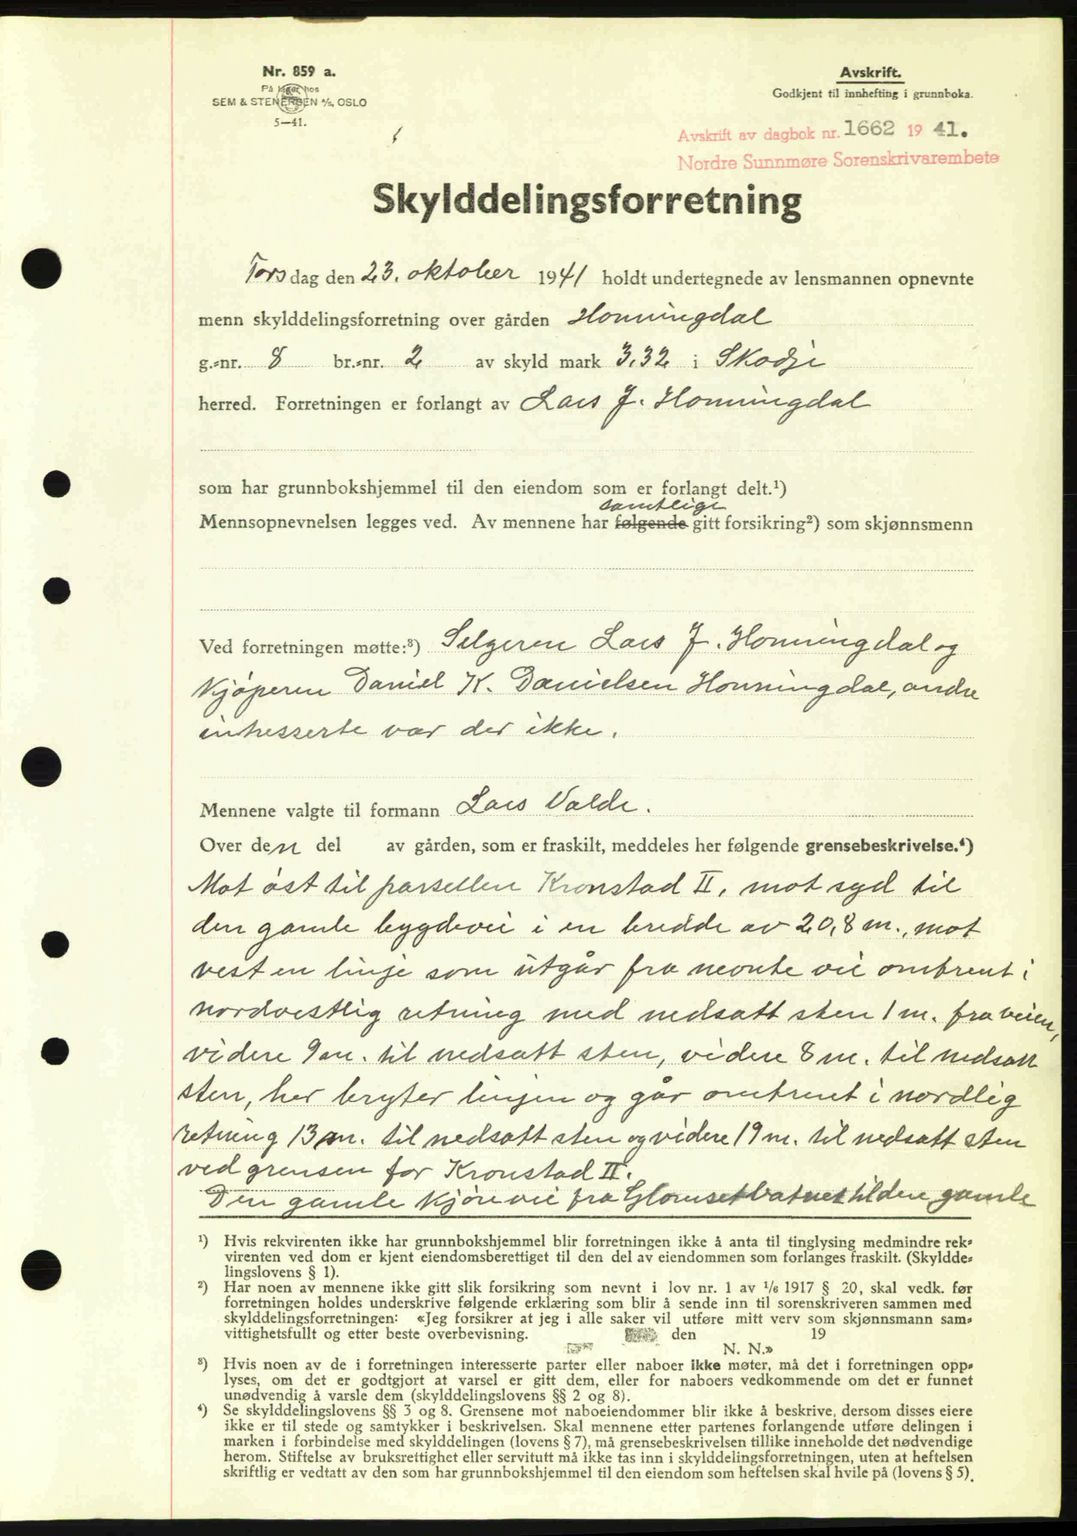 Nr. 859 a.
På lager hos
SEM & STENERSEN A/S, OSLO
5—41.
Avskrift.
Godkjent til innhefting i grunnboka.
Avskrift av dagbok nr. 1662 19 41.
Nordre Sunnmøre Sorenskrivarembete
Skylddelingsforretning
Torsdag den 23. oktober 1941 holdt undertegnede av lensmannen opnevnte
menn skylddelingsforretning over gården Honningdal
g.-nr. 8 br.-nr. 2 av skyld mark 3,32 i Skodje
herred. Forretningen er forlangt av Lars J. Honningdal
som har grunnbokshjemmel til den eiendom som er forlangt delt.¹)
samtlige
Mennsopnevnelsen legges ved. Av mennene har følgende gitt forsikring²) som skjønnsmenn
Ved forretningen møtte:³) Selgeren Lars J. Honningdal og
Kjøperen Daniel K. Danielsen Honningdal, andre
intresserte var der ikke.
Mennene valgte til formann Lars Valde.
Over den del av gården, som er fraskilt, meddeles her følgende grensebeskrivelse.⁴)
Mot øst til parsellen Kronstad II, mot syd til
den gamle bygdevei i en bredde av 20,8 m., mot
vest en linje som utgår fra nevnte vei omtrent i
nordvestlig retning med nedsatt sten 1 m. fra veien,
videre 9 m. til nedsatt sten, videre 8 m. til nedsatt
sten, her bryter linjen og går omtrent i nordlig
retning 13 m. til nedsatt sten og videre 19 m. til nedsatt sten
ved grensen for Kronstad II.
Den gamle kjørevei fra Glomsetvatnet til den gamle
¹) Hvis rekvirenten ikke har grunnbokshjemmel blir forretningen ikke å anta til tinglysing medmindre rek-
virenten ved dom er kjent eiendomsberettiget til den del av eiendommen som forlanges fraskilt. (Skyldde-
lingslovens § 1).
²) Har noen av mennene ikke gitt slik forsikring som nevnt i lov nr. 1 av 1/6 1917 § 20, skal vedk. før
forretningen holdes underskrive følgende erklæring som blir å sende inn til sorenskriveren sammen med
skylddelingsforretningen: «Jeg forsikrer at jeg i alle saker vil utføre mitt verv som skjønnsmann sam-
vittighetsfullt og etter beste overbevisning. den 19
N. N.»
³) Hvis noen av de i forretningen interesserte parter eller naboer ikke møter, må det i forretningen opp-
lyses, om det er godtgjort at varsel er gitt dem, eller for naboers vedkommende om det er funnet
unødvendig å varsle dem (skylddelingslovens §§ 2 og 8).
⁴) Se skylddelingslovens §§ 3 og 8. Grensene mot naboeiendommer blir ikke å beskrive, dersom disses eiere
ikke er til stede og samtykker i beskrivelsen. Skal mennene etter partenes forlangende utføre delingen i
marken i forbindelse med skylddelingen (lovens § 7), må grensebeskrivelsen tillike inneholde det nødvendige
herom. Stiftelse av bruksrettighet eller servitutt må ikke tas inn i skylddelingsforretningen, uten at heftelsen
skriftlig er vedtatt av den som har grunnbokshjemmel til den eiendom som heftelsen skal hvile på (lovens § 5).